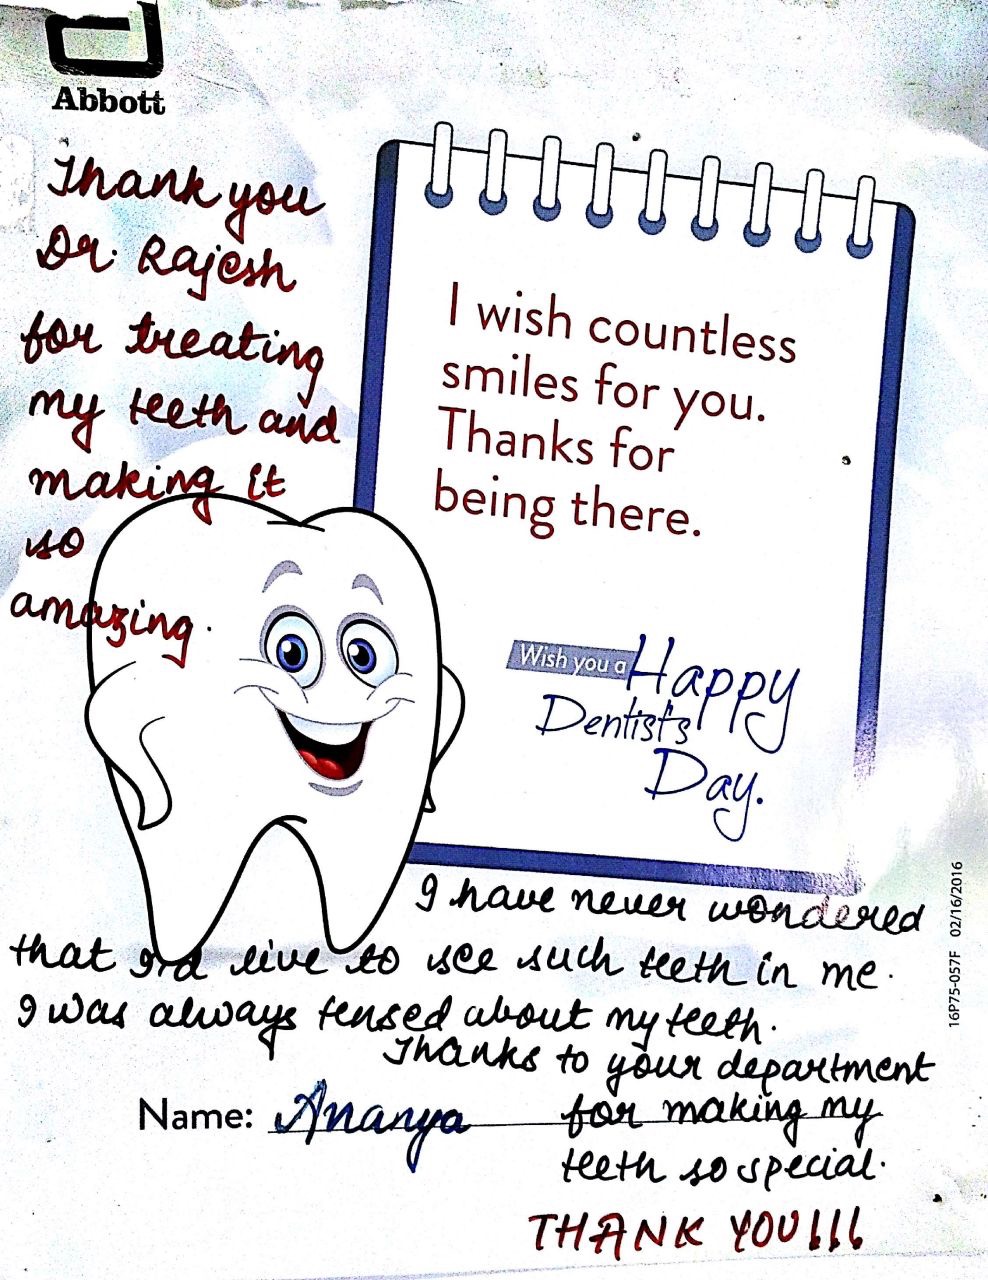 Abbott
Thank you
Dr. Rajesh
for treating
my teeth and
making it
so
amazing.
I wish countless
smiles for you.
Thanks for
being there.
Wish you a Happy
Dentist's
Day.
I have never wondered
that I'd live to see such teeth in me.
I was always tensed about my teeth.
Thanks to your department
for making my
teeth so special.
Name: Ananya
THANK YOU!!!
16P75-057F 02/16/2016